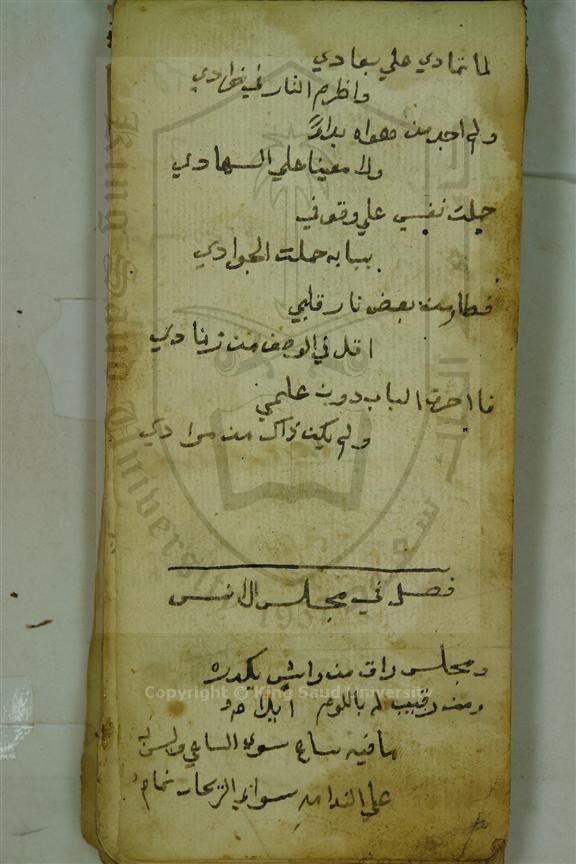 لما تمادي علي بعادي
واظرم النار في فوادي
ولم اجد من هواه بداً
ولا معينا علي السهادي
حملت نفسي علي وقوفي
ببابه حملت الجوادي
فطار من بعض نار قلبي
اقل في الوصف من زنادي
فاحرق الباب دون علمي
ولم يكن ذاك من مرادي
فصل في مجلس الانس
ومجلس راق من واش يكدره
ومن رقيب له باللوم ايلام
ما فيه ساع سوي الساقي وليس به
علي الندامه سوي الريحان نمام
Copyright © King Saud University
King Saud University
1957